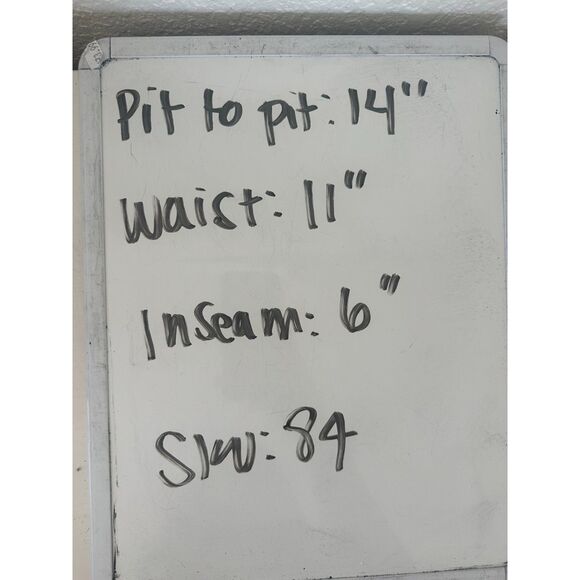 Pit to pit: 14"
Waist: 11"
Inseam: 6"